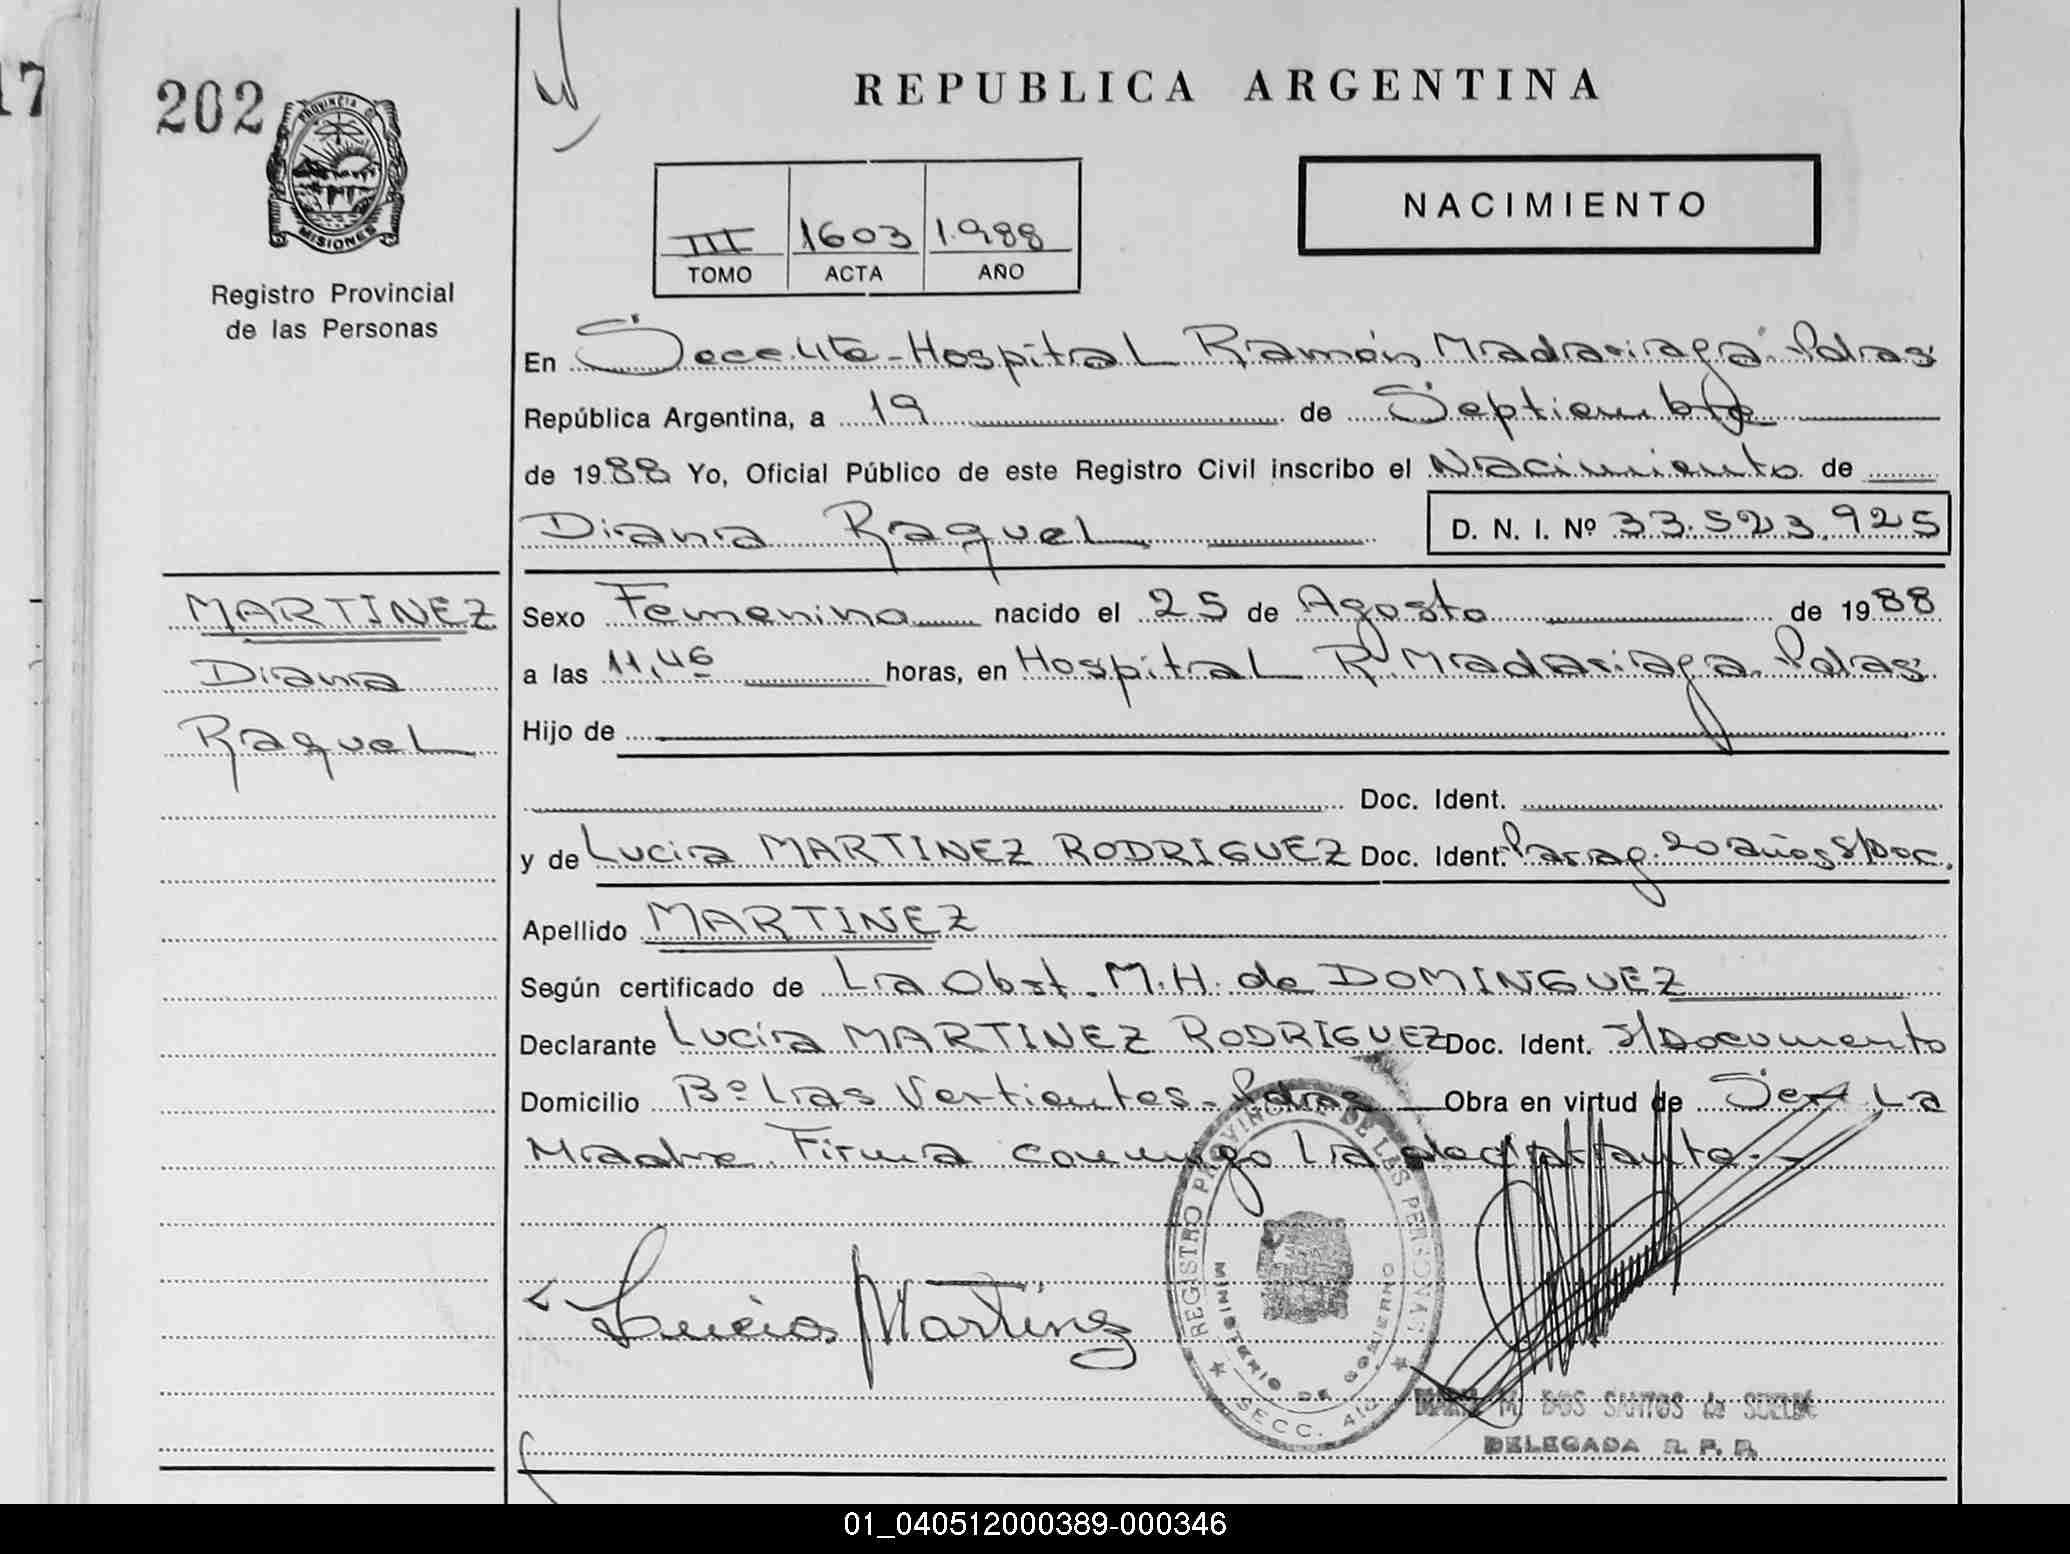 17
202
PROVINCIA D
MISIONES
Registro Provincial
de las Personas
REPUBLICA ARGENTINA
NACIMIENTO
III 1603 1.988
TOMO ACTA AÑO
En Secc. 4ta - Hospital Ramón Madariaga Pdas
República Argentina, a 19 de Septiembre
de 1988 Yo, Oficial Público de este Registro Civil inscribo el Nacimiento de
Diana Raquel D. N. I. Nº 33.523.925
MARTINEZ
Diana
Raquel
Sexo Femenino nacido el 25 de Agosto de 1988
a las 11,46 horas, en Hospital R. Madariaga Pdas
Hijo de
Doc. Ident.
y de Lucia MARTINEZ RODRIGUEZ Doc. Ident. Parag. 20 años S/Doc.
Apellido MARTINEZ
Según certificado de La Obst. M.H. de DOMINGUEZ
Declarante Lucía MARTINEZ RODRIGUEZ Doc. Ident. S/Documento
Domicilio Bº Las Vertientes - Pdas Obra en virtud de Ser La
Madre. Firma conmigo la declarante.-
Lucia Martinez
REGISTRO PROVINCIAL DE LAS PERSONAS
MINISTERIO DE GOBIERNO
SECC. 4ta
M. DOS SANTOS de
DELEGADA R. P. P.
01_040512000389-000346